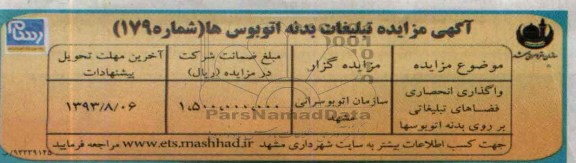 آگهی مزایده تبلیغات بدنه اتوبوس ها(شماره۱۷۹)
موضوع مزایده
مزایده گزار
مبلغ ضمانت شرکت در مزایده (ریال)
آخرین مهلت تحویل پیشنهادات
واگذاری انحصاری فضاهای تبلیغاتی بر روی بدنه اتوبوسها
سازمان اتوبوسرانی مشهد
۱,۵۰۰,۰۰۰,۰۰۰
۱۳۹۳/۸/۰۶
ParsNamadData
جهت کسب اطلاعات بیشتر به سایت شهرداری مشهد www.ets.mashhad.ir مراجعه فرمایید